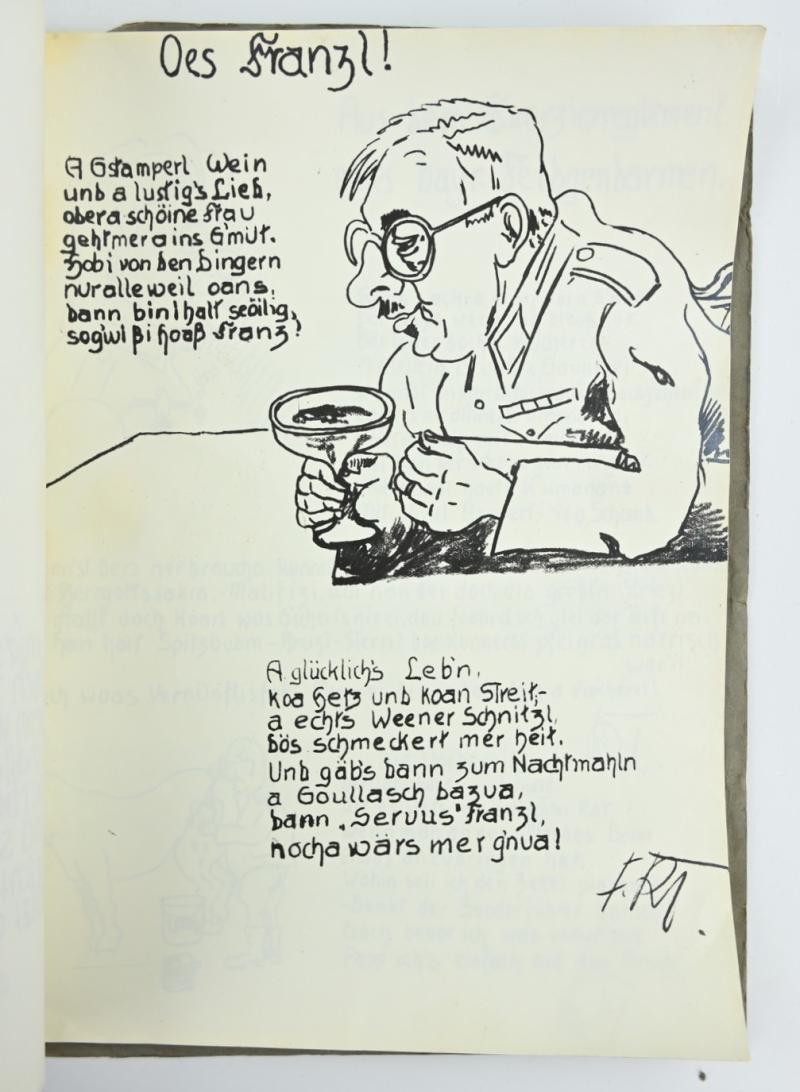 Des Franzl!
A Gstamperl Wein
und a lustig's Lied,
ober a schöine Frau
geht mer a ins G'müt.
Hob i von den Dingern
nur alleweil oans,
dann bin I halt seölig,
sog wi ßi hoaß Franz!
A glücklich's Leb'n,
koa Hetz und koan Streit,-
a echt's Weener Schnitzl,
dös schmeckert mer heit.
Und gäb's dann zum Nachtmahln
a Goullasch dazua,
dann "Servus" Franzl,
nocha wärs mer g'nua!